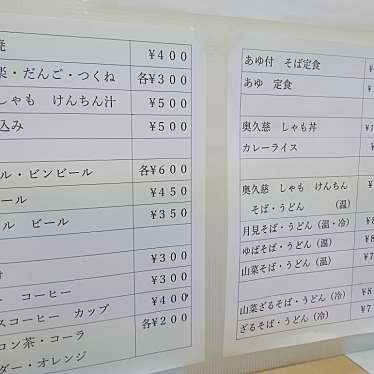 焼 ¥400
楽・だんご・つくね 各¥300
しゃも けんちん汁 ¥500
込み ¥500
ル・ビンビール 各¥600
ール ¥450
ル ビール ¥350
¥300
ー コーヒー ¥300
スコーヒー カップ ¥400
コン茶・コーラ 各¥200
ダー・オレンジ
あゆ付 そば定食 ¥
あゆ 定食 ¥
奥久慈 しゃも丼 ¥1
カレーライス ¥
奥久慈 しゃも けんちん
そば・うどん (温) ¥
月見そば・うどん (温・冷) ¥8
ゆばそば・うどん (温) ¥8
山菜そば・うどん (温) ¥7
山菜ざるそば・うどん (冷) ¥8
ざるそば・うどん (冷) ¥7